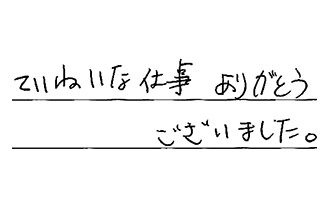 ていねいな仕事 ありがとう
ございました。